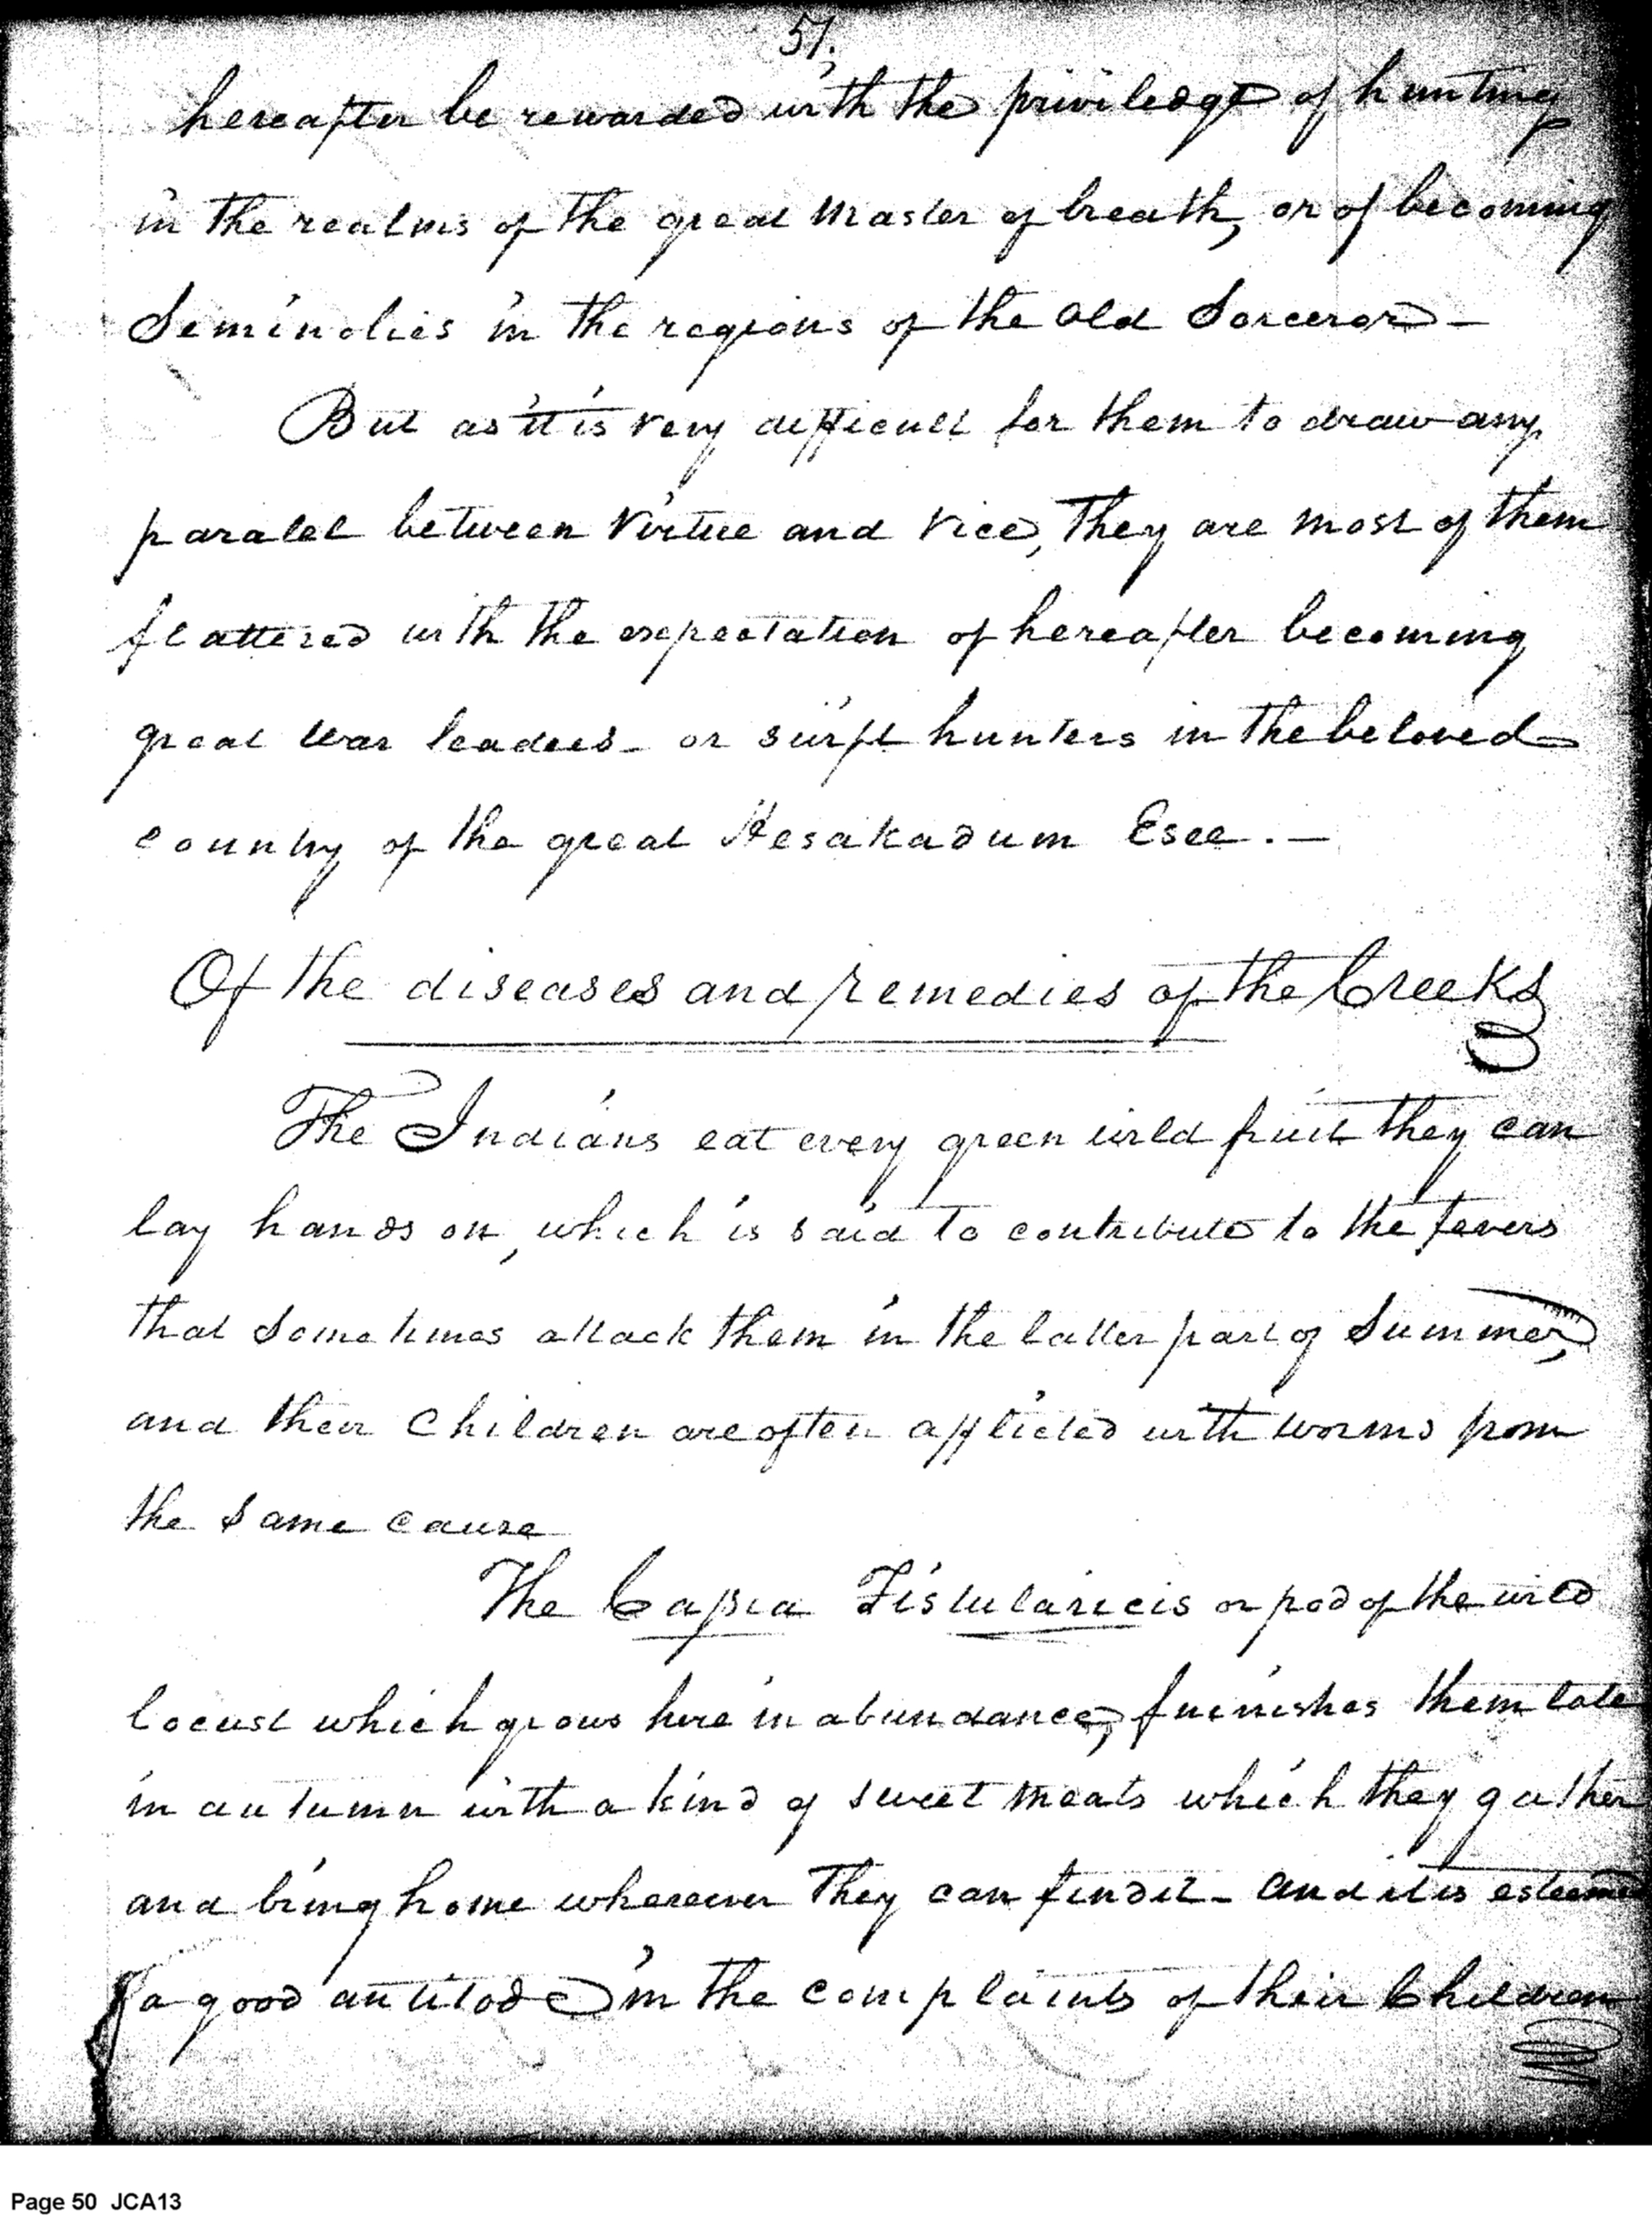 51.
hereafter be rewarded with the priviledge of hunting
in the realms of the great Master of breath, or of becoming
Seminolies in the regions of the old Sorceror —
But as it is very difficult for them to draw any
paralel between Virtue and Vice, They are most of them
flattered with the expectation of hereafter becoming
great War leaders - or swift hunters in the beloved
country of the great Hesakadum Esee. —
Of the diseases and remedies of the Creeks
The Indians eat every green wild fruit they can
lay hands on, which is said to contribute to the fevers
that Sometimes attack them in the latter part of Summer,
and their Children are often afflicted with worms from
the Same cause
The Cassia Fistularicis or pod of the wild
locust which grows here in abundance, furnishes them late
in autumn with a kind of sweet meats which they gather
and bring home whereever They can find it - and it is esteemed
a good antitode in the complaints of their Children
Page 50 JCA13